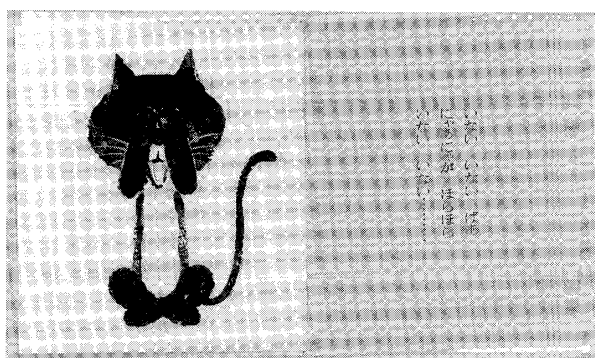 いない　いない　ばあ
にゃあにゃが　ほらほら
いない　いない……